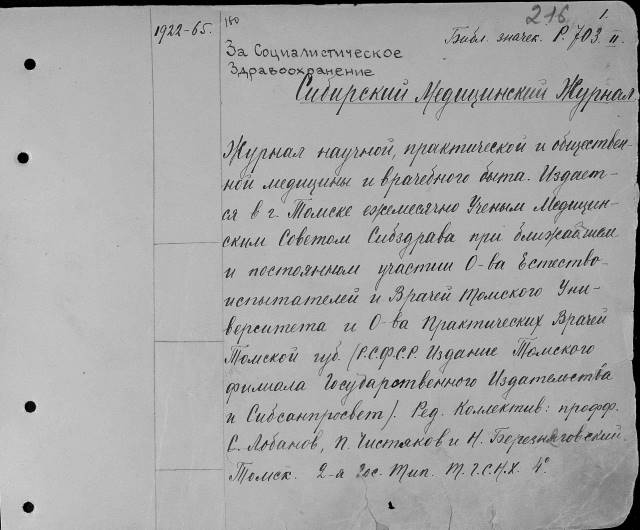 1922-65.
180
216
1.
Библ. значек. Р. 703. II.
За Социалистическое
Здравоохранение
Сибирский Медицинский Журнал.
Журнал научной, практической и обществен-
ной медицины и врачебного быта. Издает-
ся в г. Томске ежемесячно Ученым Медицин-
ским Советом Сибздрава при ближайшем
и постоянном участии О-ва Естество-
испытателей и Врачей Томского Уни-
верситета и О-ва Практических Врачей
Томской губ. (Р.С.Ф.С.Р. Издание Томского
филиала Государственного Издательства
и Сибсанпросвет). Ред. Коллектив: профф.
С. Лобанов, П. Чистяков и Н. Березняговский.
Томск. 2-я Гос. Тип. Т.Г.С.Н.Х. 4°